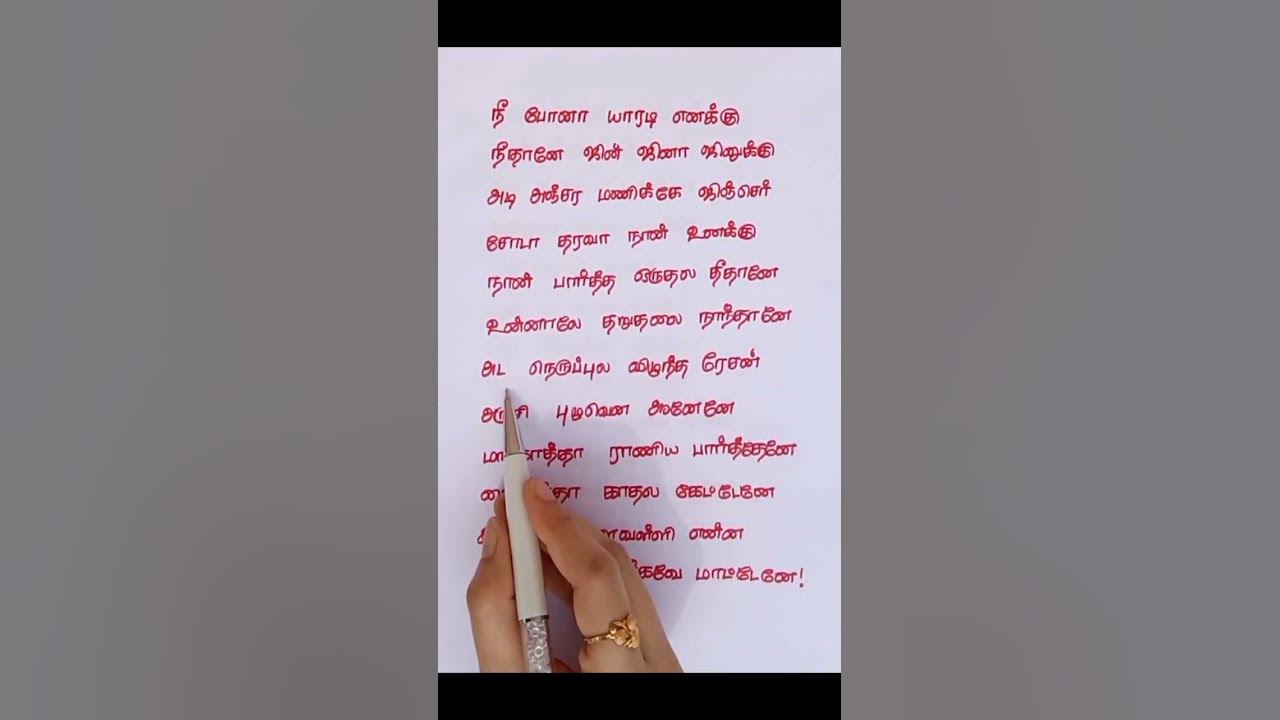 நீ போனா யாரடி எனக்கு
நீதானே ஜின் ஜினா ஜினுக்கு
அடி அஞ்சர மணிக்கே ஜிஞ்செர்
சோடா தரவா நான் உனக்கு
நான் பார்த்த ஒருதல தீதானே
உன்னாலே தறுதலை நாந்தானே
அட நெருப்புல விழுந்த ரேசன்
புழுவென ஆனேனே
ராணிய பார்த்தேனே
காதல கேட்டேனே
என்ன
மாட்டேனே!